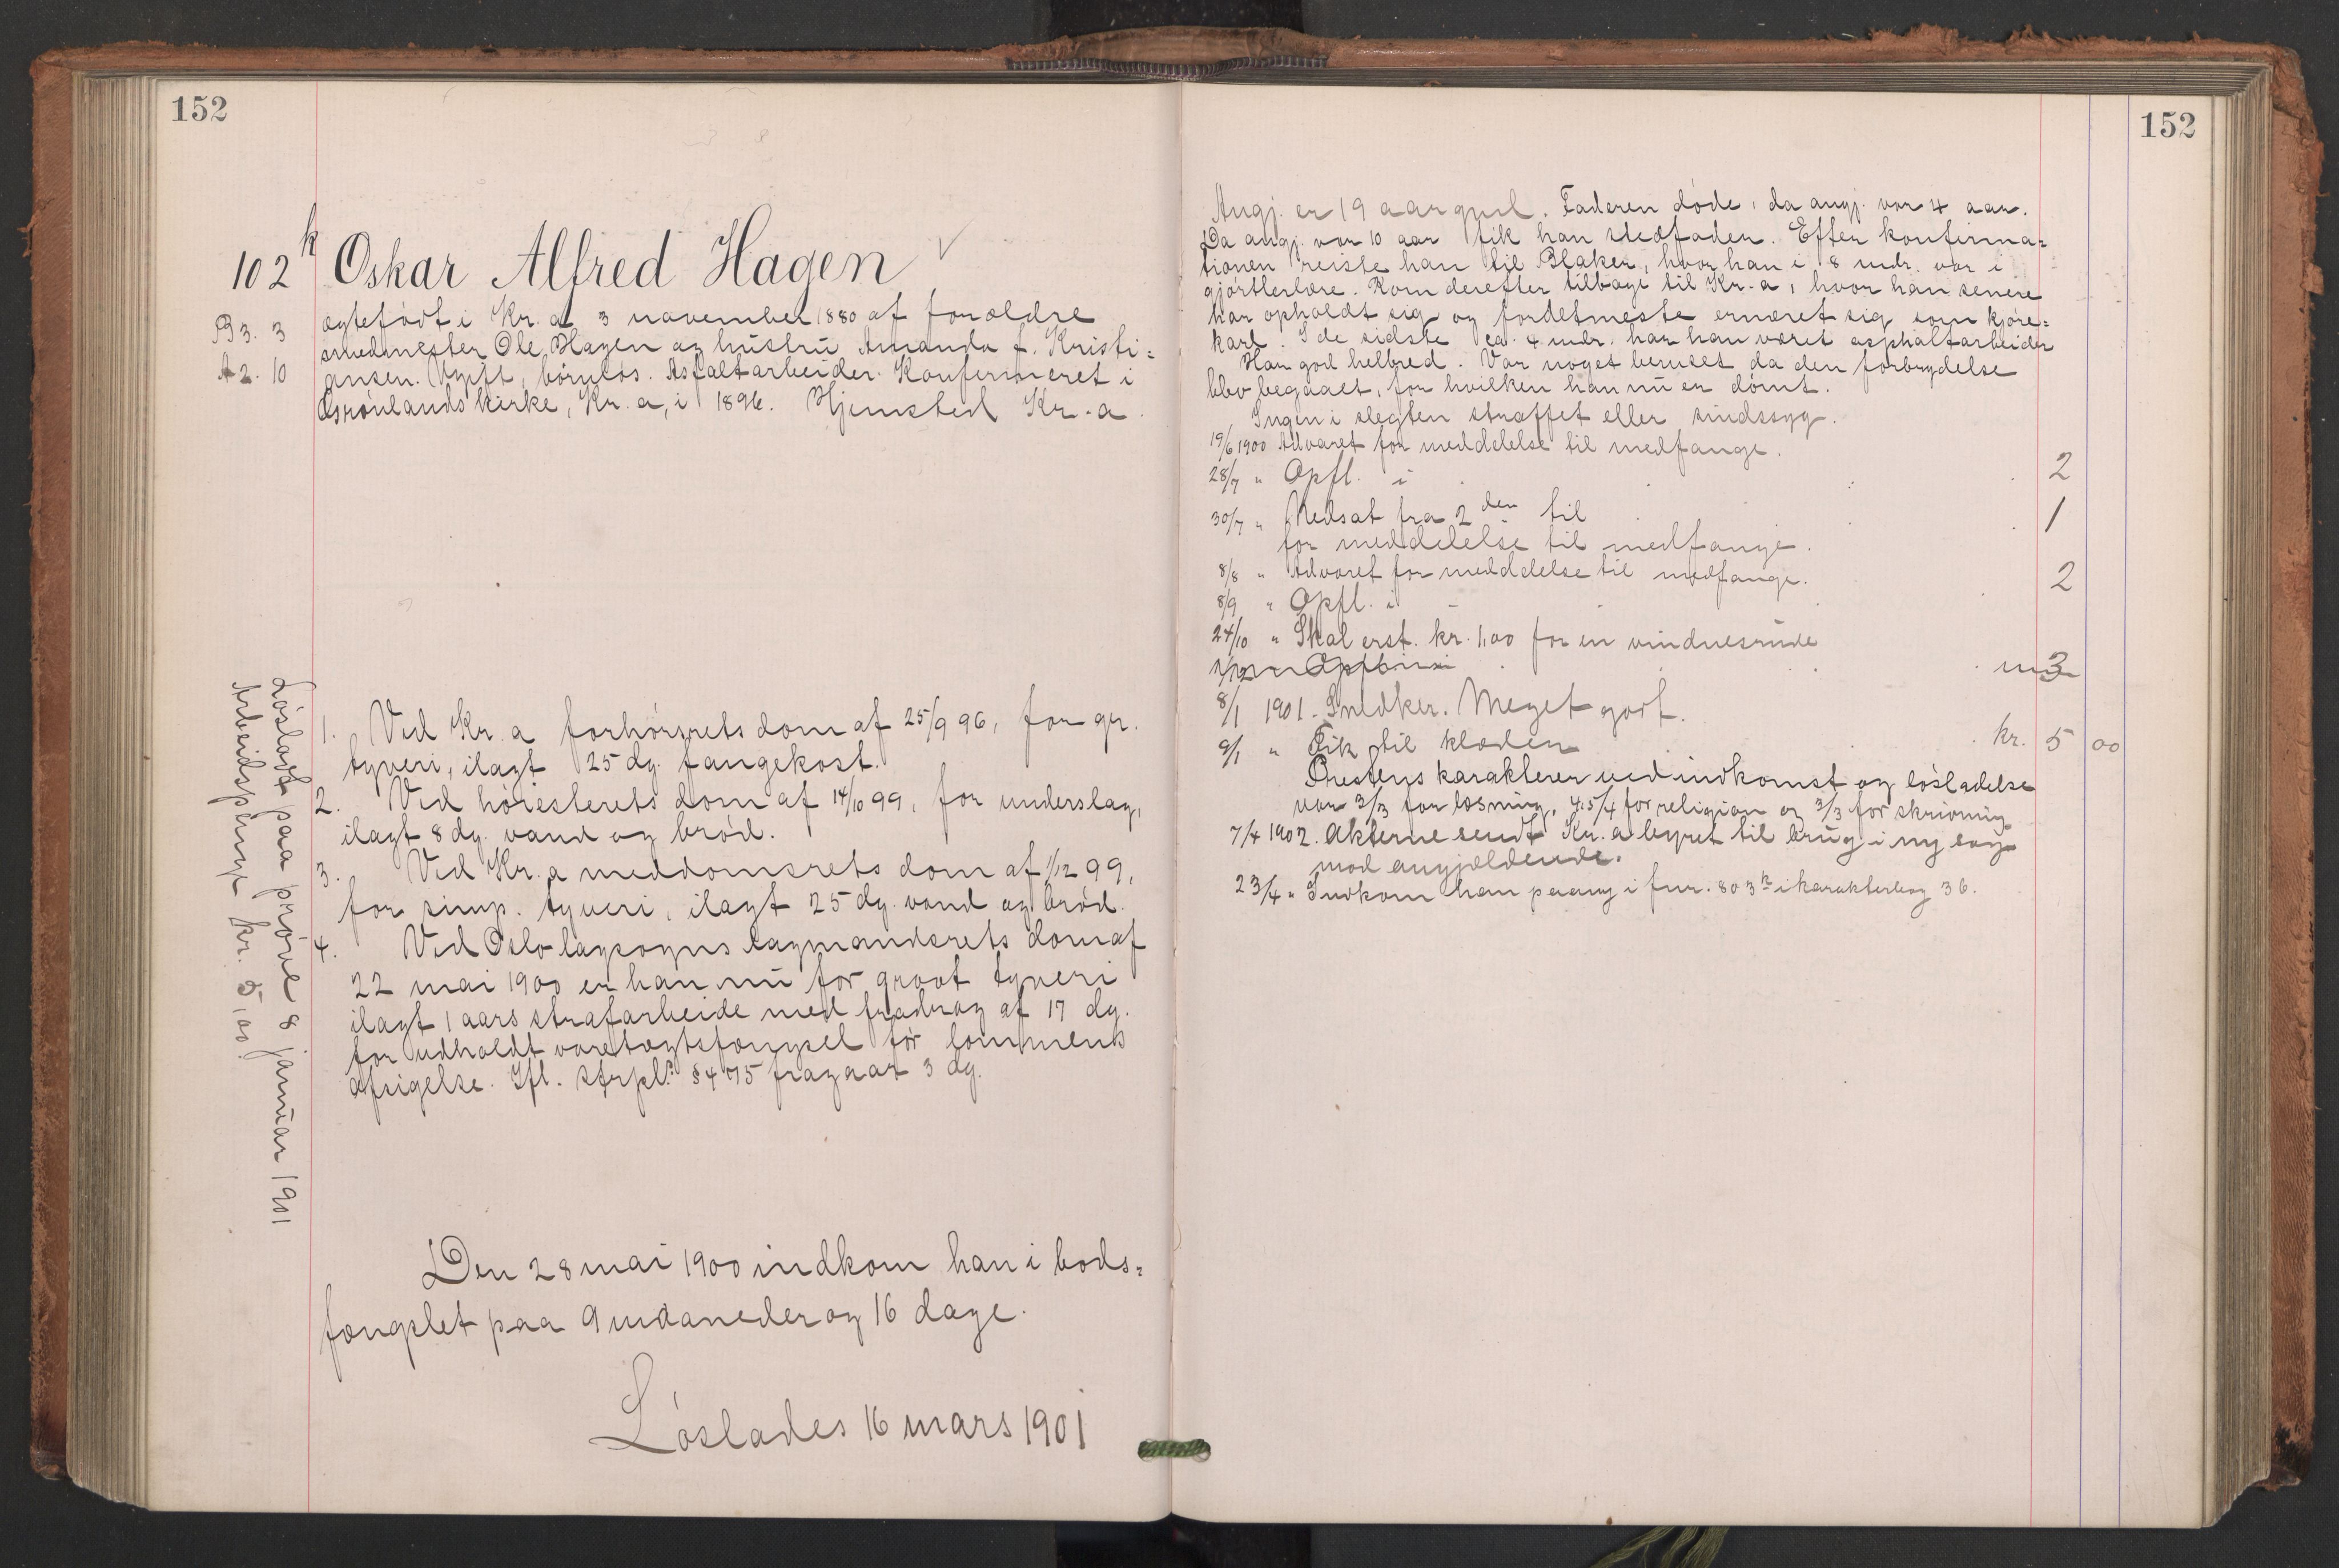 152
102 k Oskar Alfred Hagen
B 3. 3
A 2. 10
ægtefødt i Kr.a 3 november 1880 af forældre
smedmester Ole Hagen og hustru Amanda f. Kristi=
ansen. Ugift, børnløs. Asfaltarbeider. Konfirmeret i
Grønlands kirke, Kr.a, i 1896. Hjemsted Kr.a.
1. Ved Kr.a forhørsrets dom af 25/9 96, for gr.
tyveri, ilagt 25 dg. fangekost.
2. Ved høiesterets dom af 14/10 99, for underslag,
ilagt 8 dg. vand og brød.
3. Ved Kr.a meddomsrets dom af 1/12 99,
for simp. tyveri, ilagt 25 dg. vand og brød.
4. Ved Oslo lagsogns lagmandsrets dom af
22 mai 1900 er han nu for grovt tyveri
ilagt 1 aars strafarbeide med fradrag af 17 dg.
for udholdt varetægtsfængsel før dommens
afsigelse. Ifl. strpl. § 475 fragaar 3 dg.
Løslagt paa prøve 8 januar 1901
Arbeidspenge kr. 5,00.
Den 28 mai 1900 indkom han i bods=
fængslet paa 9 maaneder og 16 dage.
Løslades 16 mars 1901
152
Angj. er 19 aar gml. Faderen døde, da angj. var 4 aar.
Da angj. var 10 aar fik han stedfader. Efter konfirma=
tionen reiste han til Blaker, hvor han i 8 mdr. var i
gjørtlerlære. Kom derefter tilbage til Kr.a, hvor han senere
har opholdt sig og fordetmeste ernæret sig som kjøre=
karl. I de sidste ca. 4 mdr. har han været asphaltarbeider
Har god helbred. Var noget beruset da den forbrydelse
blev begaaet, for hvilken han nu er dømt.
Ingen i slegten straffet eller sindssyg.
19/6 1900 Advaret for meddelelse til medfange.
28/7 " Opfl. i 2
30/7 " Nedsat fra 2den til 1
for meddelelse til medfange.
8/8 " Advaret for meddelelse til medfange.
8/9 " Opfl. i 2
24/10 " Skal erst. kr. 1,00 for en vinduesrude
1/12 " Opfl. i 3
8/1 1901. Snedker. Meget godt.
9/1 " Fik til klæder kr. 5 00
Prestens karakterer ved indkomst og løsladelse
var 3/3 for læsning, 4,5/4 for religion og 3/3 for skrivning
7/4 1902. Akterne sendt Kr.a byret til brug i ny sag
mod angjældende.
23/4 " Indkom han paany i fnr. 803 k i karakterbog 36.